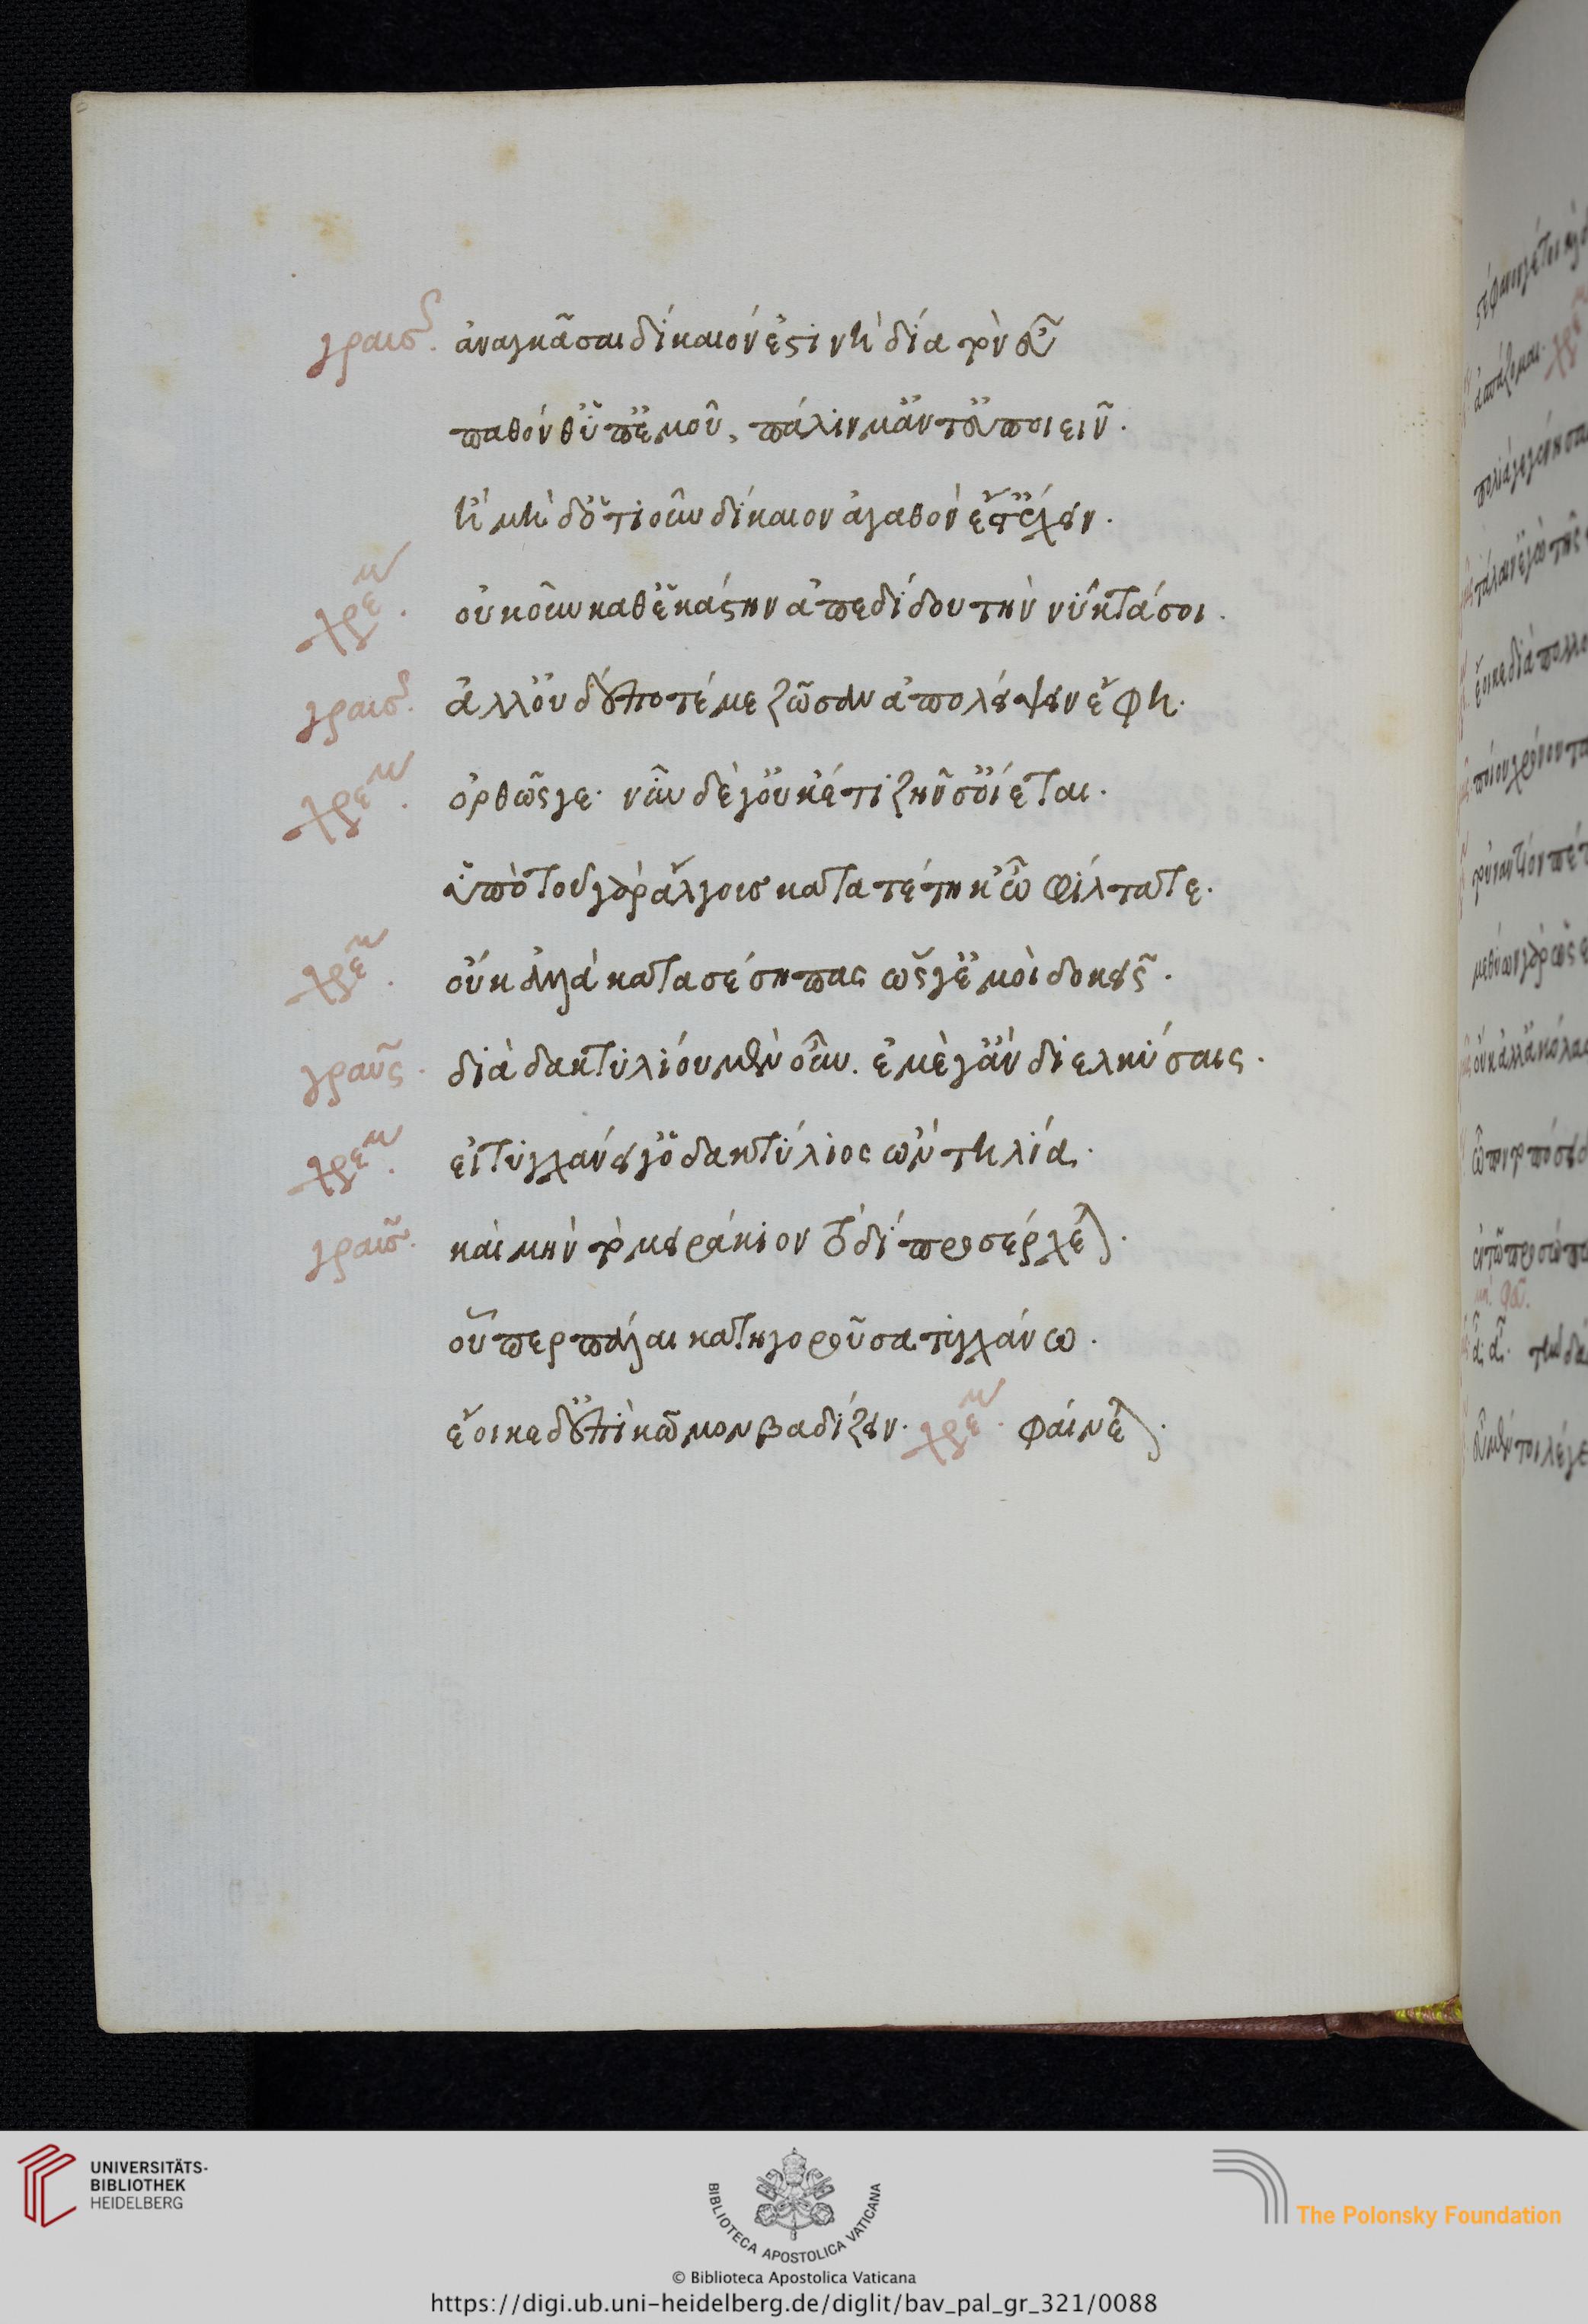 γραῦς. ἀναγκάσαι δίκαιόν ἐστι νὴ δία τὸν εὖ
παθόνθ' ὑπ' ἐμοῦ, πάλιν μ' ἀντευποιεῖν.
ἢ μὴ δ' ὁτιοῦν δίκαιον ἀγαθόν ἐστ' ἔχειν.
χρεμ. οὐκοῦν καθ' ἑκάστην ἀπεδίδου τὴν νύκτα σοι.
γραῦς. ἀλλ' οὐδέποτέ με ζῶσαν ἀπολείψειν ἔφη.
χρεμ. ὀρθῶς γε. νῦν δέ γ' οὐκέτι ζῆν σ' οἴεται.
ὑπὸ τοῦ γὰρ ἄλγους κατατέτηκ' ὦ φίλτατε.
χρεμ. οὔκ ἀλλὰ κατασέσηπας ὥς γ' ἐμοὶ δοκεῖς.
γραῦς. διὰ δακτυλίου μὲν οὖν. ἐμὲ γ' ἂν διελκύσαις.
χρεμ. εἰ τυγχάνει γ' ὁ δακτύλιος ὢν τηλία.
γραῦς. καὶ μὴν τὸ μειράκιον τοδὶ προσέρχεται.
οὗπερ πάλαι κατηγοροῦσα τυγχάνω.
ἔοικε δ' ἐπὶ κῶμον βαδίζειν. χρεμ. φαίνεται.
UNIVERSITÄTS-
BIBLIOTHEK
HEIDELBERG
BIBLIOTECA APOSTOLICA VATICANA
The Polonsky Foundation
© Biblioteca Apostolica Vaticana
https://digi.ub.uni-heidelberg.de/diglit/bav_pal_gr_321/0088